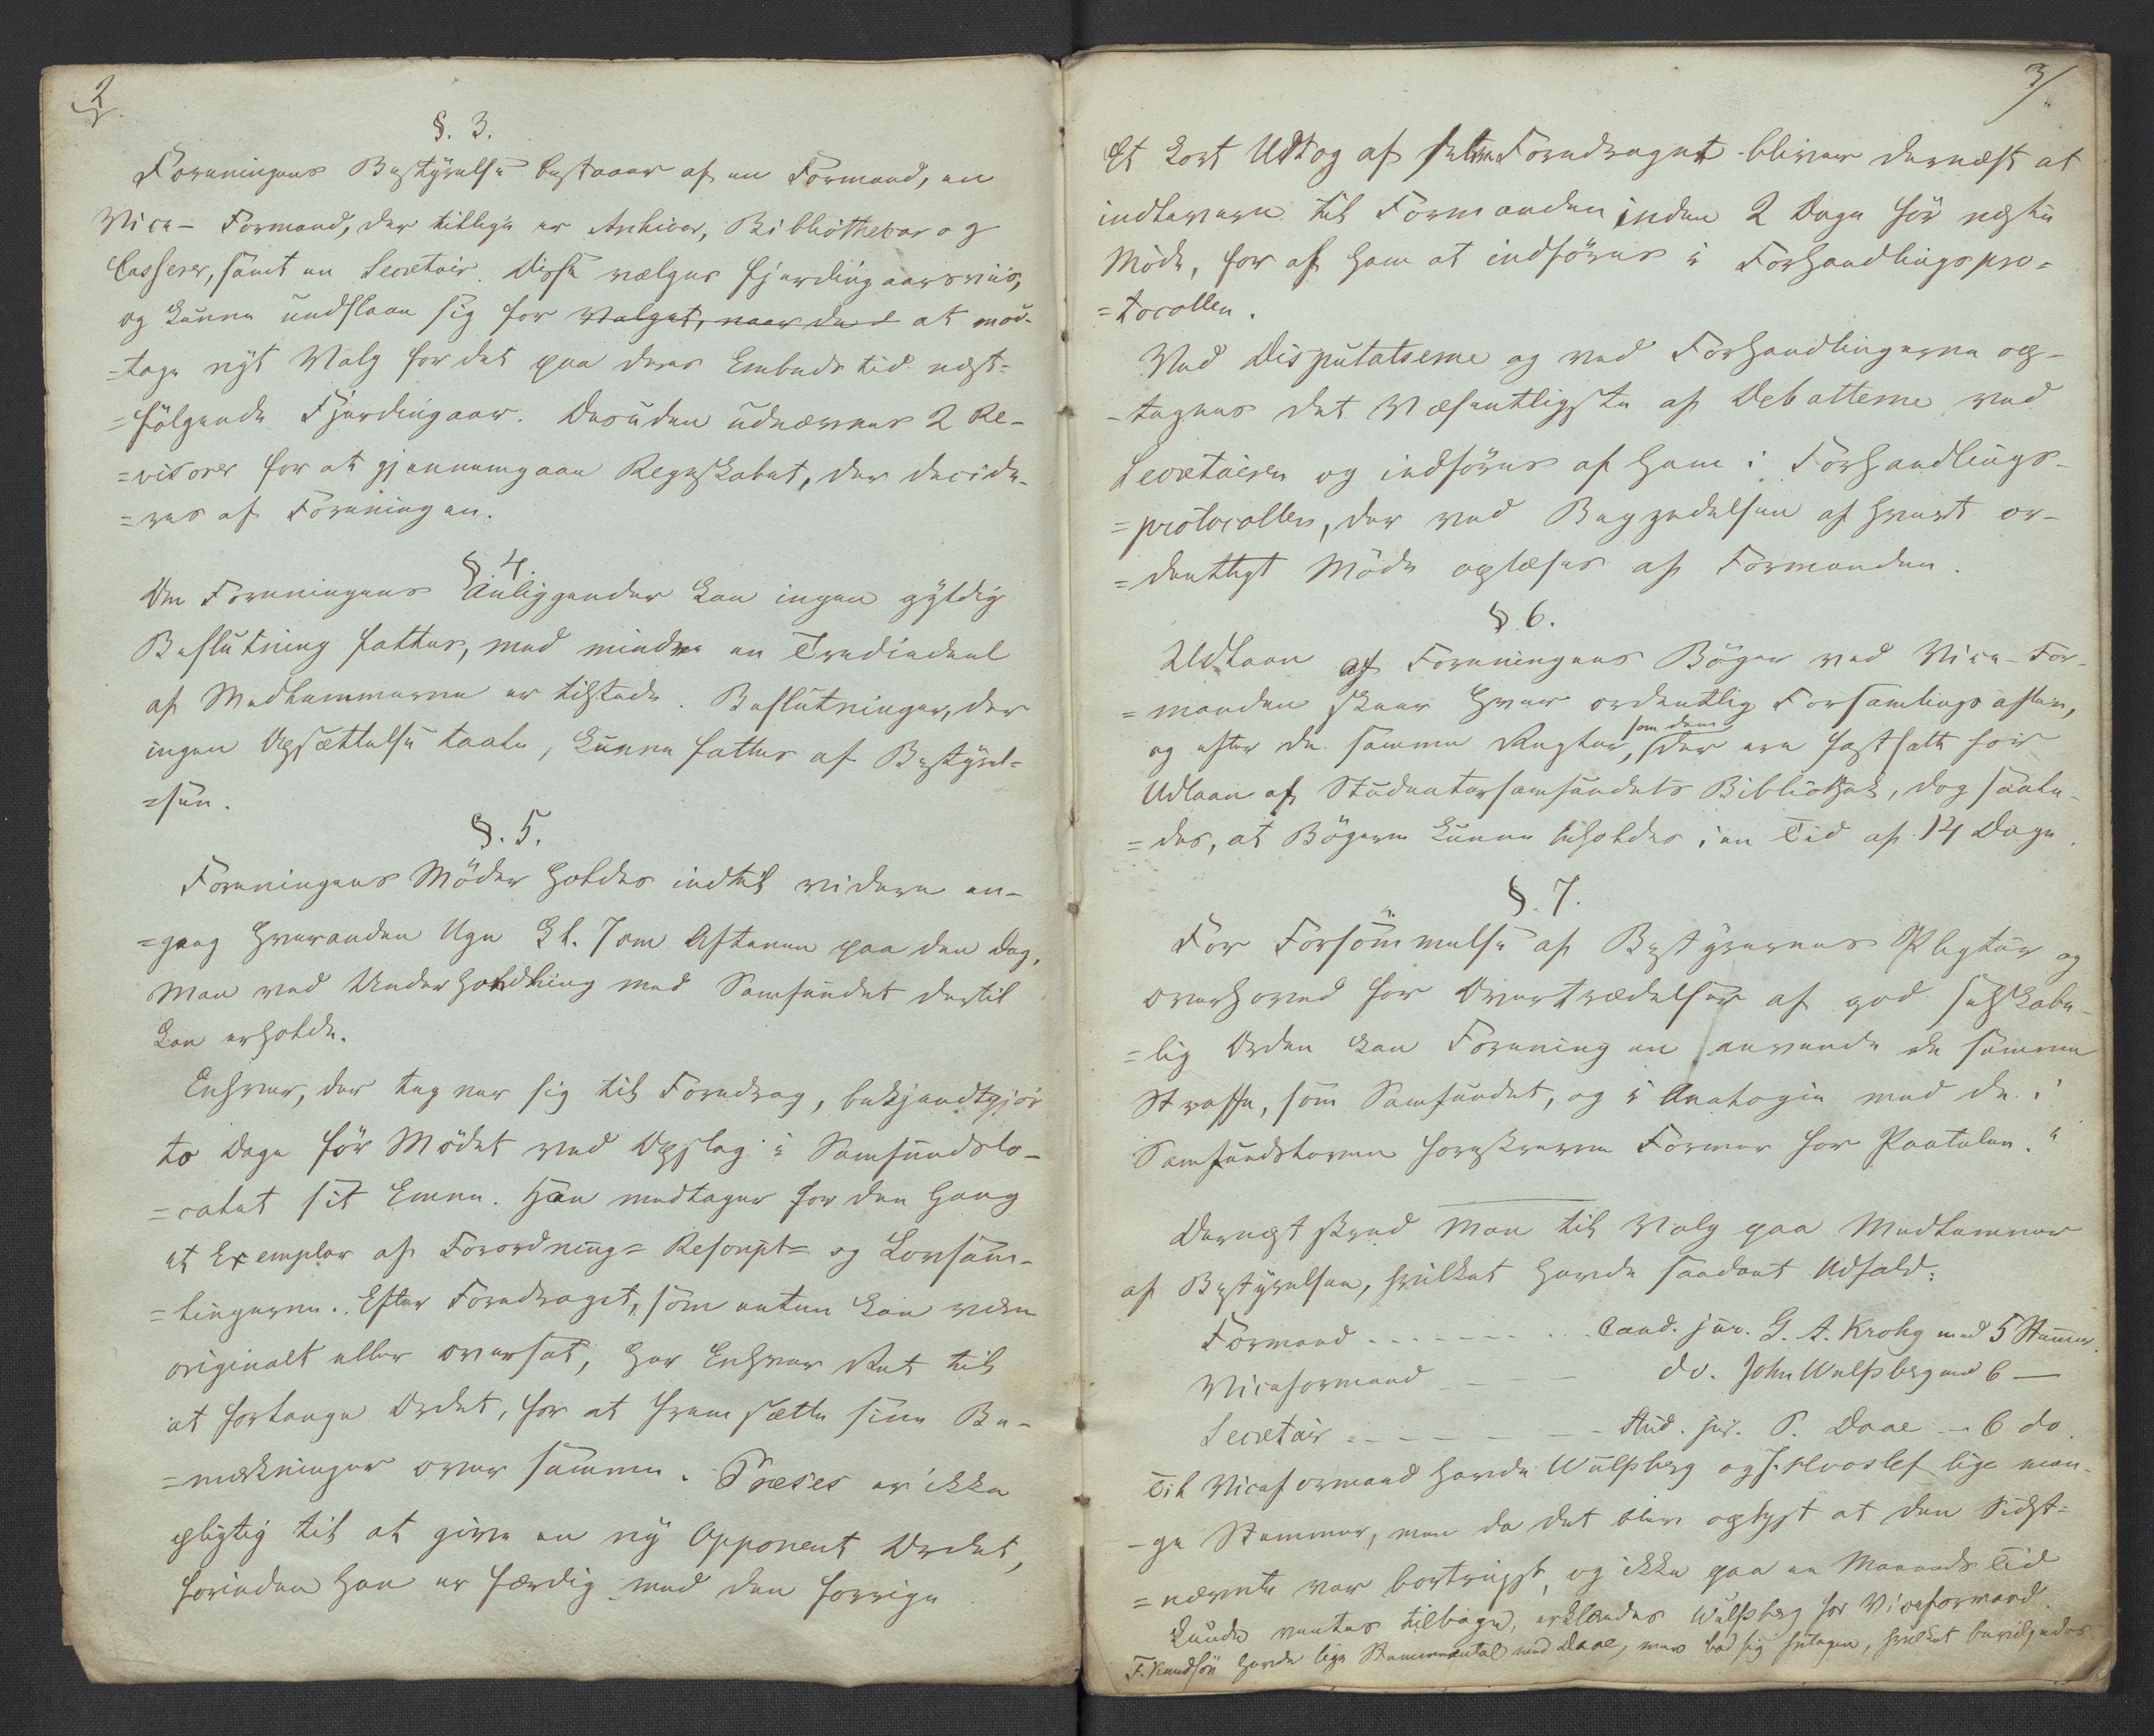 2
§. 3.
Foreningens Bestyrelse bestaaer af en Formand, en
Vice- Formand, der tillige er Arkivar, Bibliothekar og
Casserer, samt en Secretair. Disse vælges fjerdingaarsviis,
og kunne undslaae sig for Valget, naar de at mod-
=tage nyt Valg for det paa deres Embedstid næst=
=følgende Fjerdingaar. Desuden udnævnes 2 Re-
=visorer for at gjennemgaae Regnskabet, der decide-
=res af Foreningen.
§ 4.
Om Foreningens Anliggender kan ingen gyldig
Beslutning fattes, med mindre en Trediedeel
af Medlemmerne er tilstede. Beslutninger, der
ingen Opsættelse taale, kunne fattes af Bestyrel=
=sen.
§. 5.
Foreningens Møder holdes indtil videre en-
=gang hveranden Uge Kl. 7 om Aftenen paa den Dag,
man ved Underhandling med Samfundet dertil
kan erholde.
Enhver, der tegner sig til Foredrag, bekjendtgjør
to Dage før Mødet ved Opslag i Samfundslo-
=calet sit Emne. Han medtager for den Gang
et Exemplar af Forordning= Rescript= og Lovsam-
=lingerne. Efter Foredraget, som enten kan være
originalt eller oversat, har Enhver Ret til
at forlange Ordet, for at fremsætte sine Be-
=mærkninger over samme. Præses er ikke
pligtig til at give en ny Opponent Ordet,
forinden han er færdig med den forrige
3/
Et kort Udtog af Foredraget bliver dernæst at
indlevere til Formanden inden 2 Dage før næste
Møde, for af ham at indføres i Forhandlingspro=
=tocollen.
Ved Disputatserne og ved Forhandlingerne op-
-tegnes det Væsentligste af Debatterne ved
Secretairen og indføres af ham i Forhandlings-
=protocollen, der ved Begyndelsen af hvert or-
=dentligt Møde oplæses af Formanden.
§ 6.
Udlaan af Foreningens Bøger ved Vice-For-
=manden skeer hver ordentlig Forsamlingsaften,
og efter de samme Regler, som dem der ere fastsatte for
Udlaan af Studentersamfundets Bibliothek, dog saale-
=des, at Bøgerne kunne beholdes i en Tid af 14 Dage.
§. 7.
For Forsømmelse af Bestyrernes Pligter og
overhoved for Overtrædelser af god selskabe-
=lig Orden kan Foreningen anvende de samme
Straffe, som Samfundet, og i Analogie med de i
Samfundsloven foreskrevne Former for Paatalen."
Dernæst skred man til Valg paa Medlemmer
af Bestyrelsen, hvilket havde saadant Udfald:
Formand - - - - - - - - - Cand. jur. G. A. Krohg med 5 Stemmer.
Viceformand - - - - do. John Wulfsberg med 6 —
Secretair - - - - - - - Stud. jur. P. Daae — 6 do.
Til Viceformand havde Wulfsberg og F. Hvoslef lige man-
-ge Stemmer, men da det blev oplyst at den Sidst=
=nævnte var bortreist, og ikke paa en Maaneds Tid
kunde ventes tilbage, erklæredes Wulfsberg for Viceformand.
F. Knudsön havde lige Stemmeantal med Daae, men bad sig fritagen, hvilket bevilgedes.